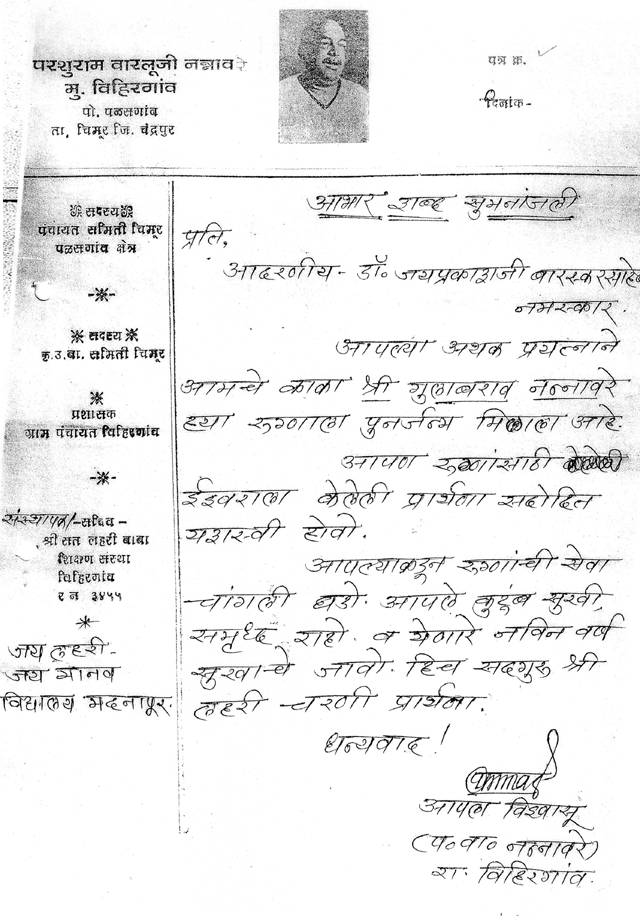 परशुराम वारलूजी नन्नावरे
मु. विहिरगांव
पो. पळसगांव
ता. चिमूर जि. चंद्रपुर
पत्र क्र.
दिनांक-
सदस्य
पंचायत समिती चिमूर
पळसगांव क्षेत्र
सदस्य
कृ.उ.बा. समिती चिमूर
प्रशासक
ग्राम पंचायत विहिरगांव
संस्थापक/-सचिव-
श्री सत लहरी बाबा
शिक्षण संस्था
विहिरगांव
र न ३४५५
जय लहरी-
जय मानव
विद्यालय मदनापूर.
आभार शब्द सुमनांजली
प्रति,
आदरणीय- डॉ. जयप्रकाशजी बारस्करसाहेब
नमस्कार.
आपल्या अथक प्रयत्नाने
आमचे काका श्री गुलाबराव नन्नावरे
ह्या रुग्णाला पुनर्जन्म मिळाला आहे.
आपण रुग्णांसाठी
ईश्वराला केलेली प्रार्थना सदोदित
यशस्वी होवो.
आपल्याकडून रुग्णांची सेवा
चांगली घडो. आपले कुटुंब सुखी,
समृध्द राहो. व येणारे नविन वर्ष
सुखाचे जावो. हिच सदगुरु श्री
लहरी चरणी प्रार्थना.
धन्यवाद!
आपला विश्वासू
(प०वा० नन्नावरे)
रा. विहिरगांव.